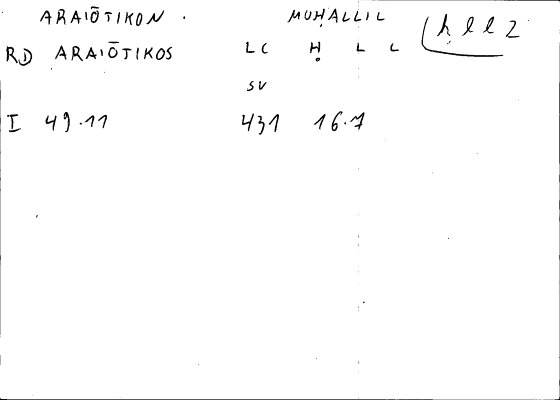 ARAIŌTIKON . MUḤALLIL ḥ l l 2
RD ARAIŌTIKOS LC Ḥ L L
SV
I 49.11 431 16.7